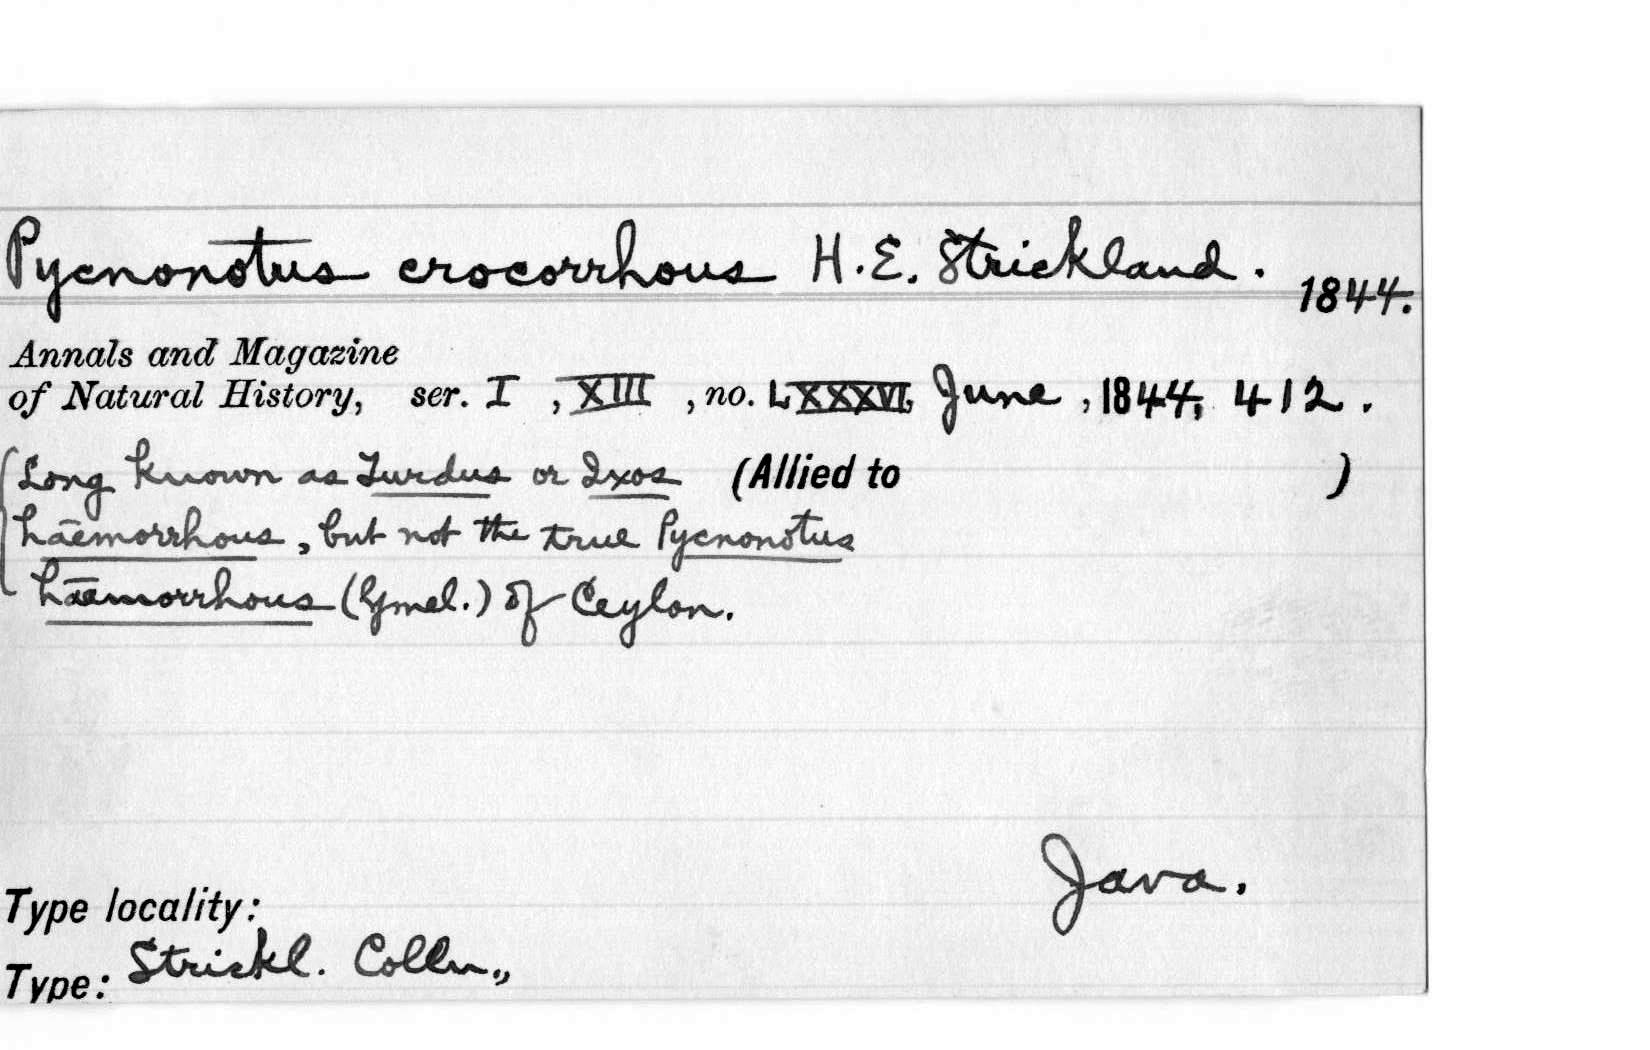 Pycnonotus crocorrhous H. E. Strickland. 1844.
Annals and Magazine
of Natural History, ser. I, XIII, no. LXXXVI, June, 1844, 412.
(Long known as Turdus or Ixos (Allied to )
hæmorrhous, but not the true Pycnonotus
hæmorrhous (Gmel.) of Ceylon.
Java.
Type locality:
Type: Strickl. Colln.,